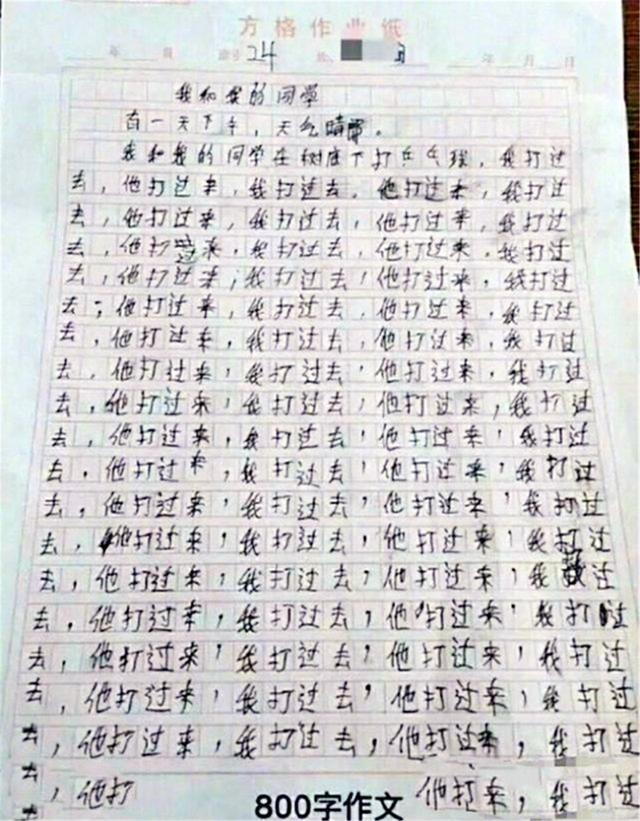 方格作业纸
年 月 24 年 月 日
我和我的同学
有一天下午，天气晴。
我和我的同学在树底下打乒乓球，我打过
去，他打过来，我打过去，他打过来，我打过
去，他打过来，我打过去，他打过来，我打过
去，他打过来，我打过去，他打过来，我打过
去，他打过来，我打过去，他打过来，我打过
去，他打过来，我打过去，他打过来，我打过
去，他打过来，我打过去，他打过来，我打过
去，他打过来，我打过去，他打过来，我打过
去，他打过来，我打过去，他打过来，我打过
去，他打过来，我打过去，他打过来，我打过
去，他打过来，我打过去，他打过来，我打过
去，他打过来，我打过去，他打过来，我打过
去，他打过来，我打过去，他打过来，我打过
去，他打过来，我打过去，他打过来，我过
去，他打过来，我打过去，他打过来，我打过
去，他打过来，我打过去，他打过来，我打过
去，他打过来，我打过去，他打过来，我打过
去，他打过来，我打过去，他打过来，我打过
去，他打 他打来，我打过
800字作文